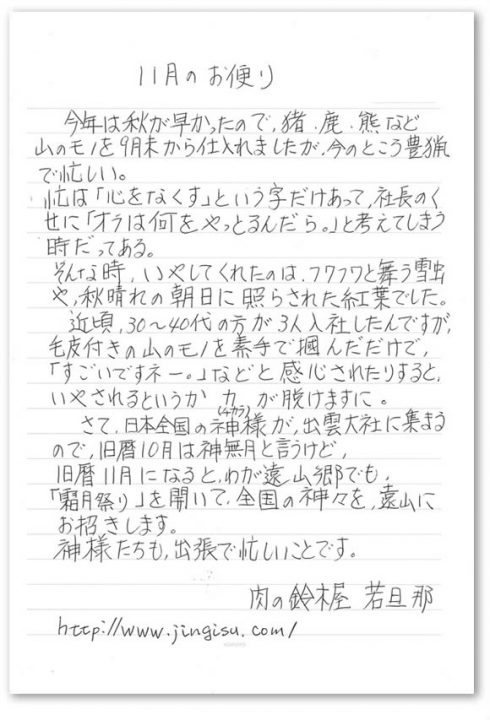 11月のお便り
今年は秋が早かったので、猪、鹿、熊など
山のモノを9月末から仕入れましたが、今のところ豊猟
で忙しい。
忙は「心をなくす」という字だけあって、社長のく
せに「オラは何をやっとるんだら。」と考えてしまう
時だってある。
そんな時、いやしてくれたのは、フワフワと舞う雪虫
や、秋晴れの朝日に照らされた紅葉でした。
近頃、30〜40代の方が3人入社したんですが、
毛皮付きの山のモノを素手で掴んだだけで、
「すごいですネー。」などと感心されたりすると、
いやされるというか力(チカラ)が脱けますに。
さて、日本全国の神様が、出雲大社に集まる
ので、旧暦10月は神無月と言うけど、
旧暦11月になると、わが遠山郷でも、
「霜月祭り」を開いて、全国の神々を、遠山に
お招きします。
神様たちも、出張で忙しいことです。
肉の鈴木屋 若旦那
http://www.jingisu.com/